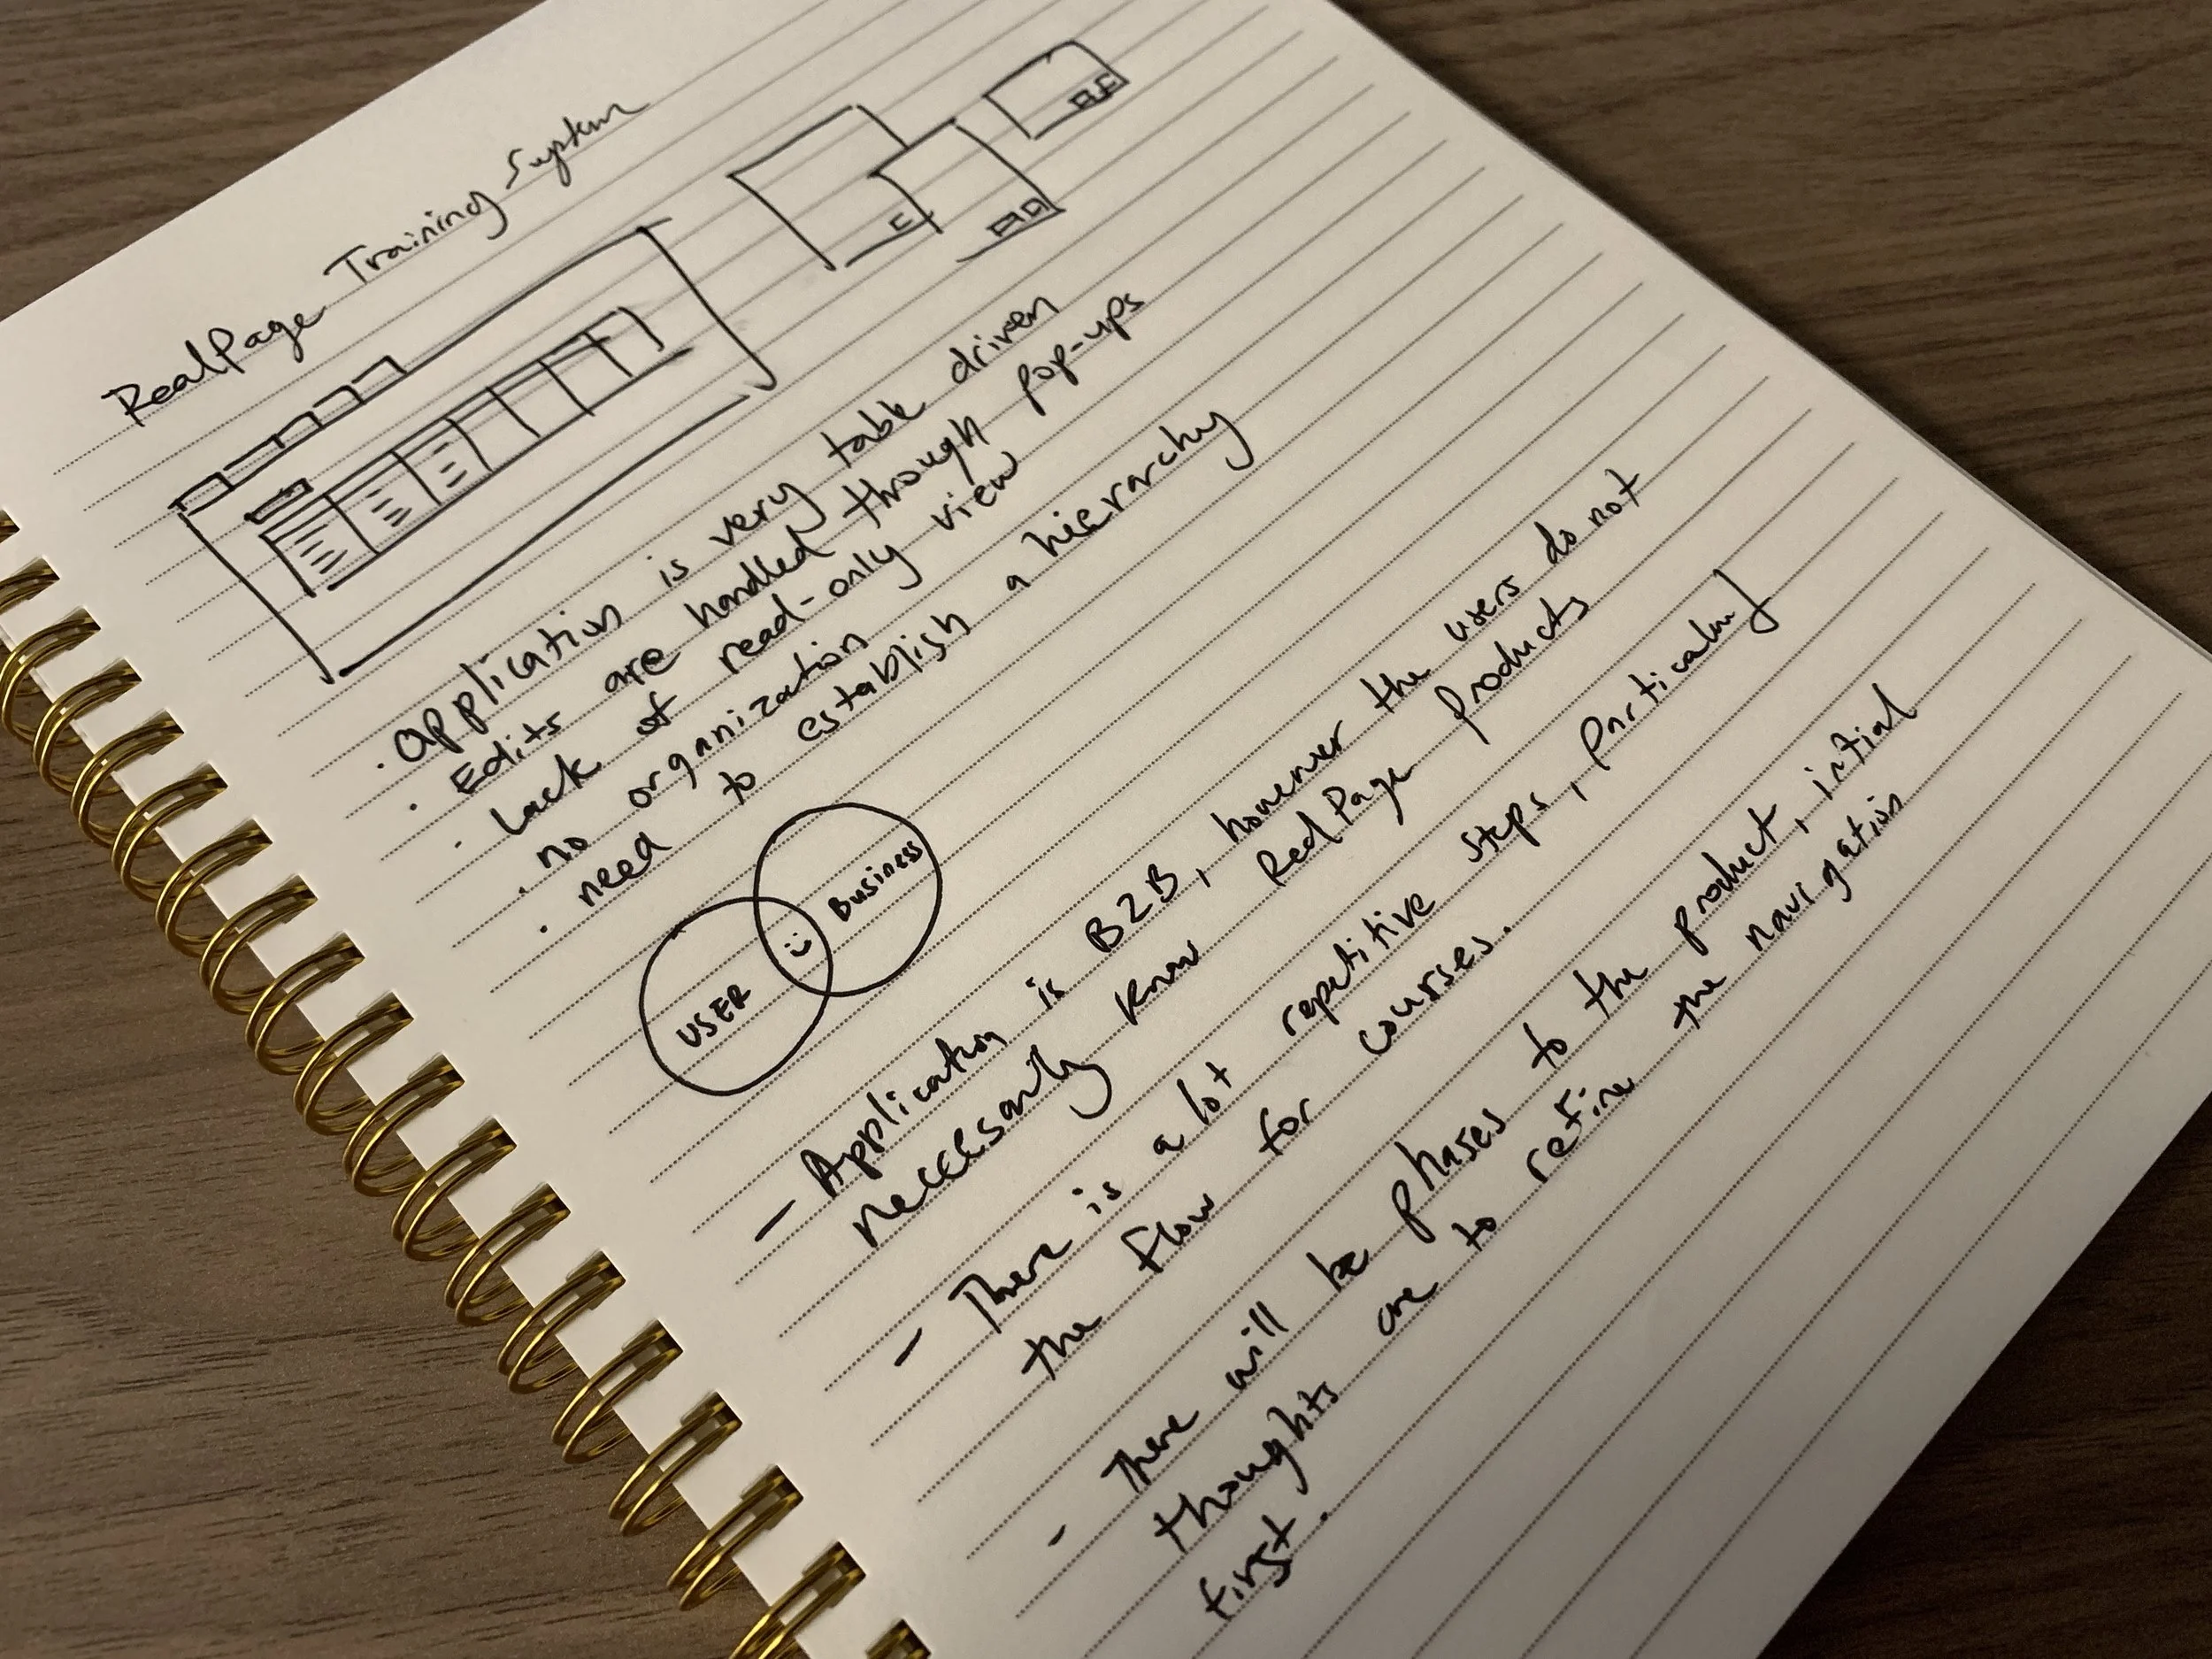 RealPage Training System
• Application is very table driven
• Edits are handled through pop-ups
• Lack of read-only view
• no organization
• need to establish a hierarchy
USER
Business
– Application is B2B, however the users do not
necessarily know RealPage products
– There is a lot repetitive steps, particularly
the flow for courses.
– There will be phases to the product, intial
thoughts are to refine the navigation
first.